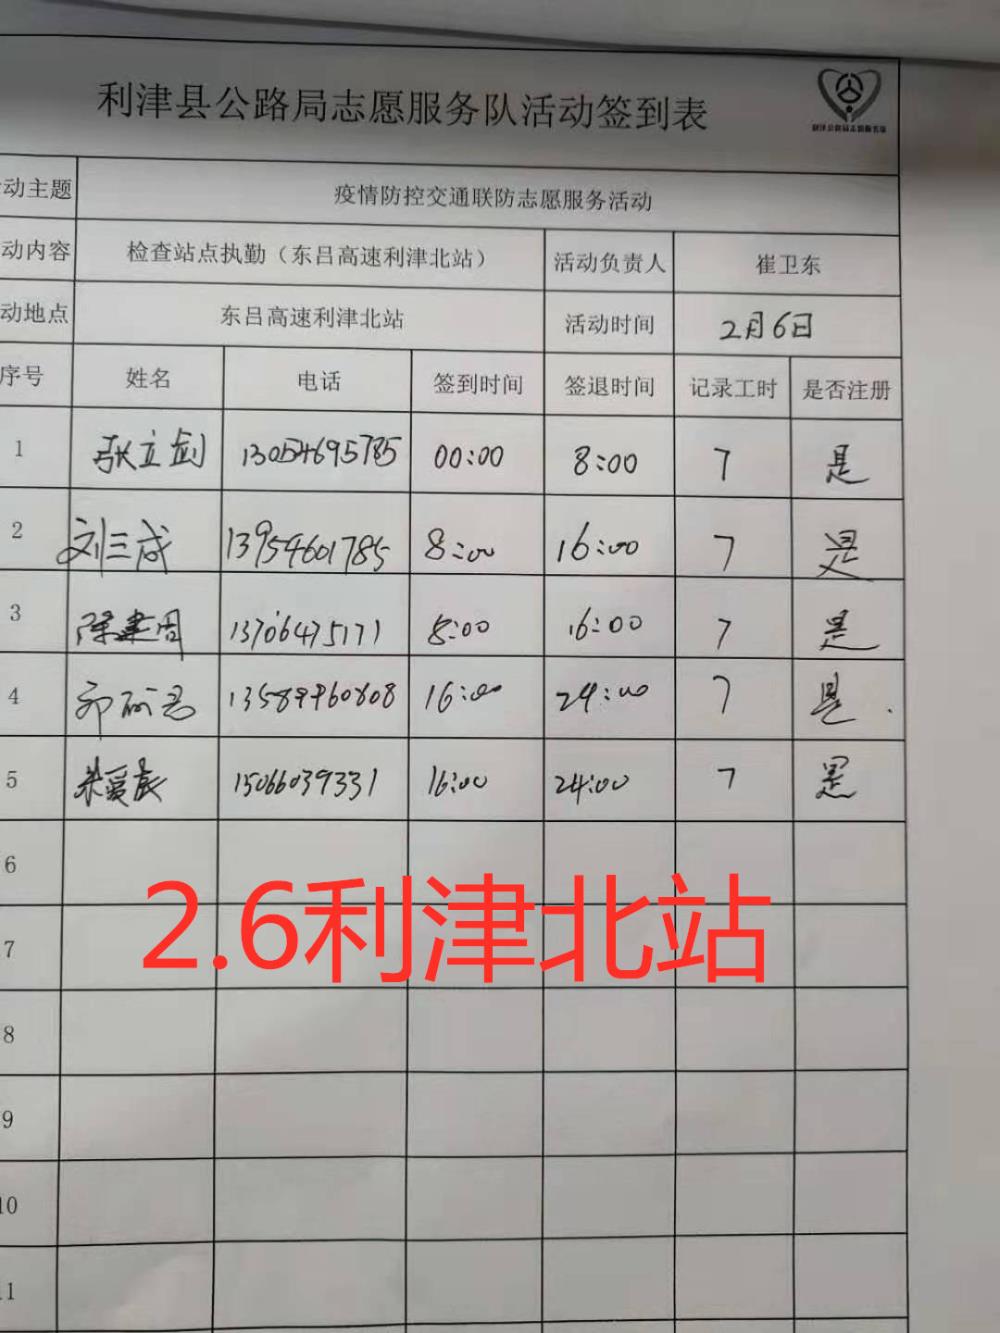 利津县公路局志愿服务队活动签到表
利津公路局志愿服务队
动主题 疫情防控交通联防志愿服务活动
动内容 检查站点执勤（东吕高速利津北站） 活动负责人 崔卫东
动地点 东吕高速利津北站 活动时间 2月6日
序号 姓名 电话 签到时间 签退时间 记录工时 是否注册
1 张立剑 13054695785 00:00 8:00 7 是
2 刘三成 13954601785 8:00 16:00 7 是
3 陈建周 13706475171 8:00 16:00 7 是
4 13589960808 16:00 24:00 7 是
5 15066039331 16:00 24:00 7 是
6
2.6利津北站
7
8
9
10
11